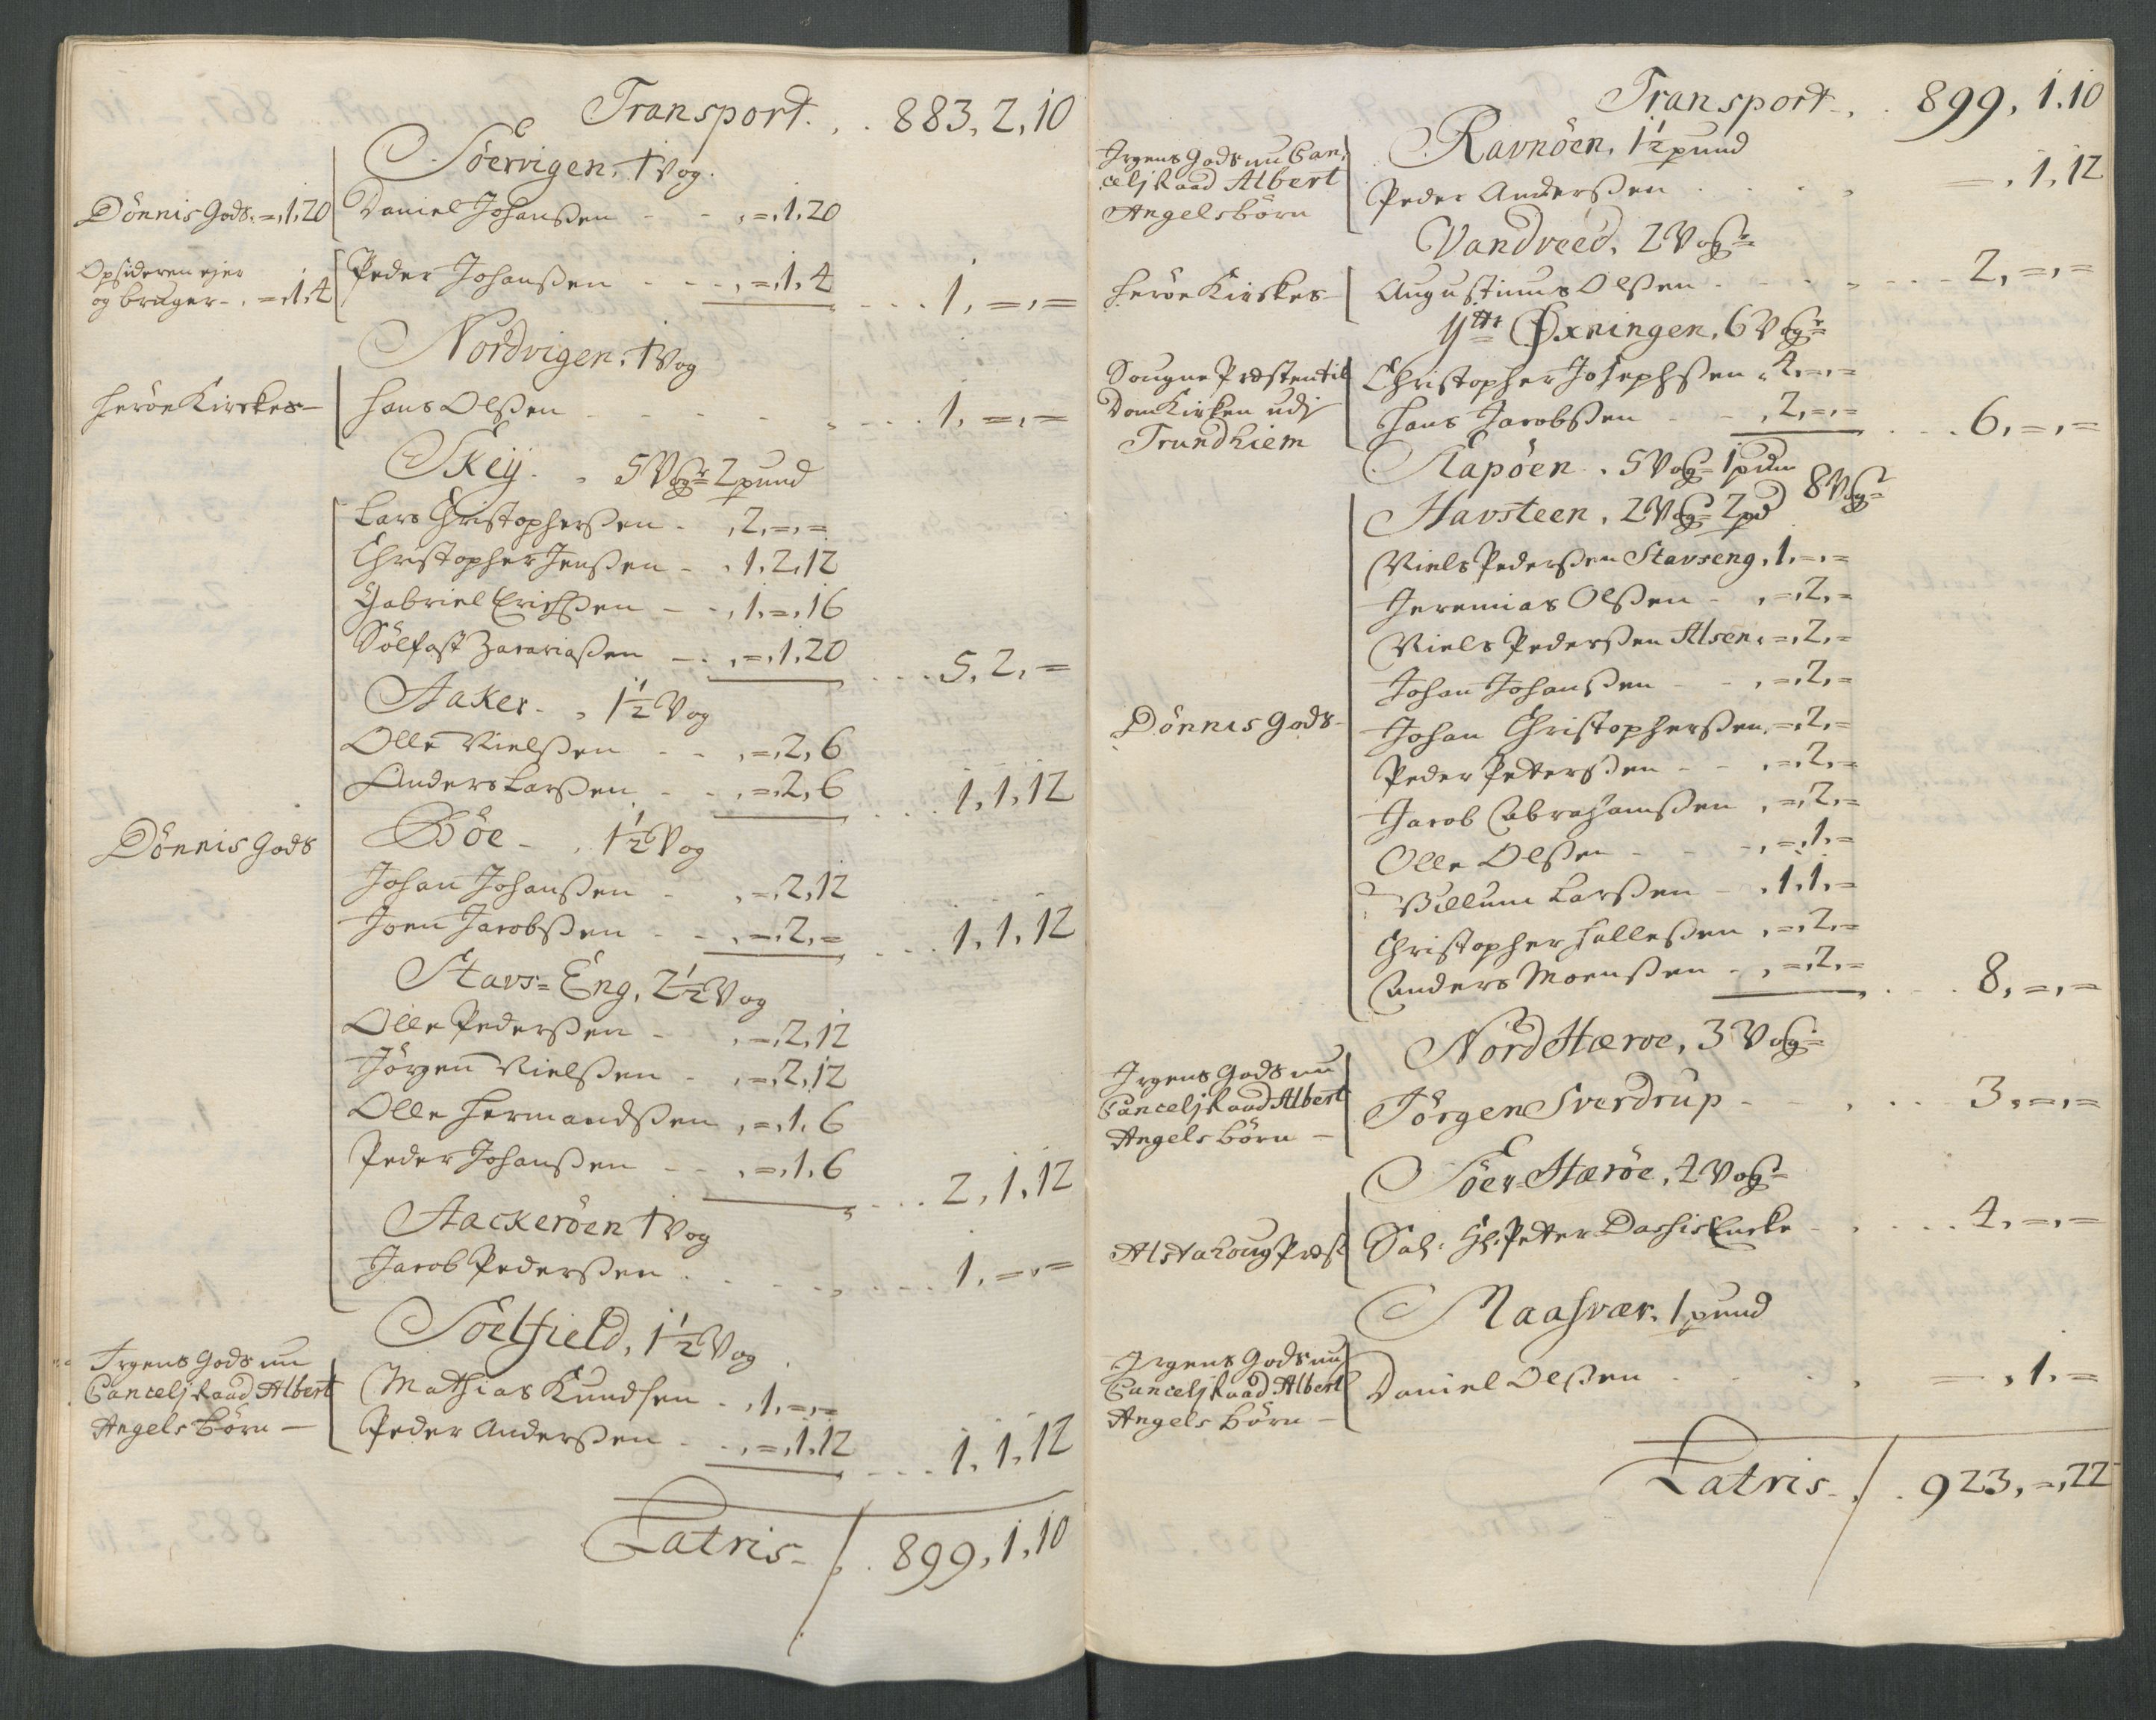 Transport . . 883, 2, 10
Söervigen, 1 Vog.
Dönnis Gods. =, 1, 20 Daniel Johanßen - - , =, 1, 20
Opsideren ejer
og bruger - . =, 1, 4 Peder Johanßen - - - , =, 1, 4 . . . 1, =, =
Nordvigen, 1 Vog
Heröe Kirckes - Hans Olßen - - - - . . . 1, =, =
Skeij. , 5 Vogr 2 pund
Lars Christopherßen - , 2, =, =
Christopher Jenßen - , 1, 2, 12
Gabriel Erichßen - - , 1, =, 16
Sölfast Zacariaßen - . , =, 1, 20 . . . 5, 2, =
Aaker - , 1½ Vog
Olle Nielßen - - , =, 2, 6
Anders Larßen - - , =, 2, 6 . . . 1, 1, 12
Dönnis Gods
Böe - , 1½ Vog
Johan Johanßen - , =, 2, 12
Joen Jacobßen - - , =, 2, = . . . 1, 1, 12
Stavs=Eng, 2½ Vog
Olle Pederßen - , =, 2, 12
Jörgen Nielßen - , =, 2, 12
Olle Hermandßen , =, 1, 6
Peder Johanßen - - , =, 1, 6 . . . 2, 1, 12
Aackeröen 1 Vog
Jacob Pederßen . - - - . . . 1, =, =
Söelfield, 1½ Vog
Irgens Gods nu
Cancelj Raad Albert
Angels Börn -
Mathias Knudsen - , 1, =, =
Peder Anderßen - - , =, 1, 12 . . . 1, 1, 12
Latris - / . 899, 1, 10
Transport - , . 899, 1, 10
Ravnöen, 1½ pund
Irgens Gods nu Can=
celj Raad Albert
Angels börn
Peder Anderßen . . . . , =, 1, 12
Vandveed, 2 Vogr
Heröe Kirckes - Augustinus Olßen - - - - - 2, =, =
Ytr Øxningen, 6 Vogr
Sougne Præsten til
Dom Kirken udj
Trundhiem
Christopher Josephßen , 4, =, =
Hans Jacobßen - - , 2, =, = . . . 6, =, =
Kapöen . 5 Vogr 1 pund
Havsteen, 2 Vogr 2 pd 8 Vogr
Niels Pederßen Stavseng, 1, =, =
Jeremias Olßen - , =, 2, =
Niels Pederßen Alsen, =, 2, =
Johan Johanßen - - , =, 2, =
Dönnis Gods -
Johan Christopherßen, =, 2, =
Peder Petterßen - - , =, 2, =
Jacob Abrahamßen , =, 2, =
Olle Olßen - - - , =, 1, =
Villum Larßen - , 1, 1, =
Christopher Halleßen , =, 2, =
Anders Moenßen - , =, 2, = . . . 8, =, =
Nord Hæroe, 3 Vogr
Irgens Gods nu
Cancelj Raad Albert
Angels börn -
Jörgen Sverdrup - - , . . . 3, =, =
Söer=Hæröe, 4 Vogr
Alstahoug Præst Sal: Hr: Petter Dasses Encke - , . . . 4, =, =
Maasvær, 1 pund
Irgens Gods nu
Cancelj Raad Albert
Angels börn -
Daniel Olßen - - - , =, 1, =
Latris - / . 923, =, 22